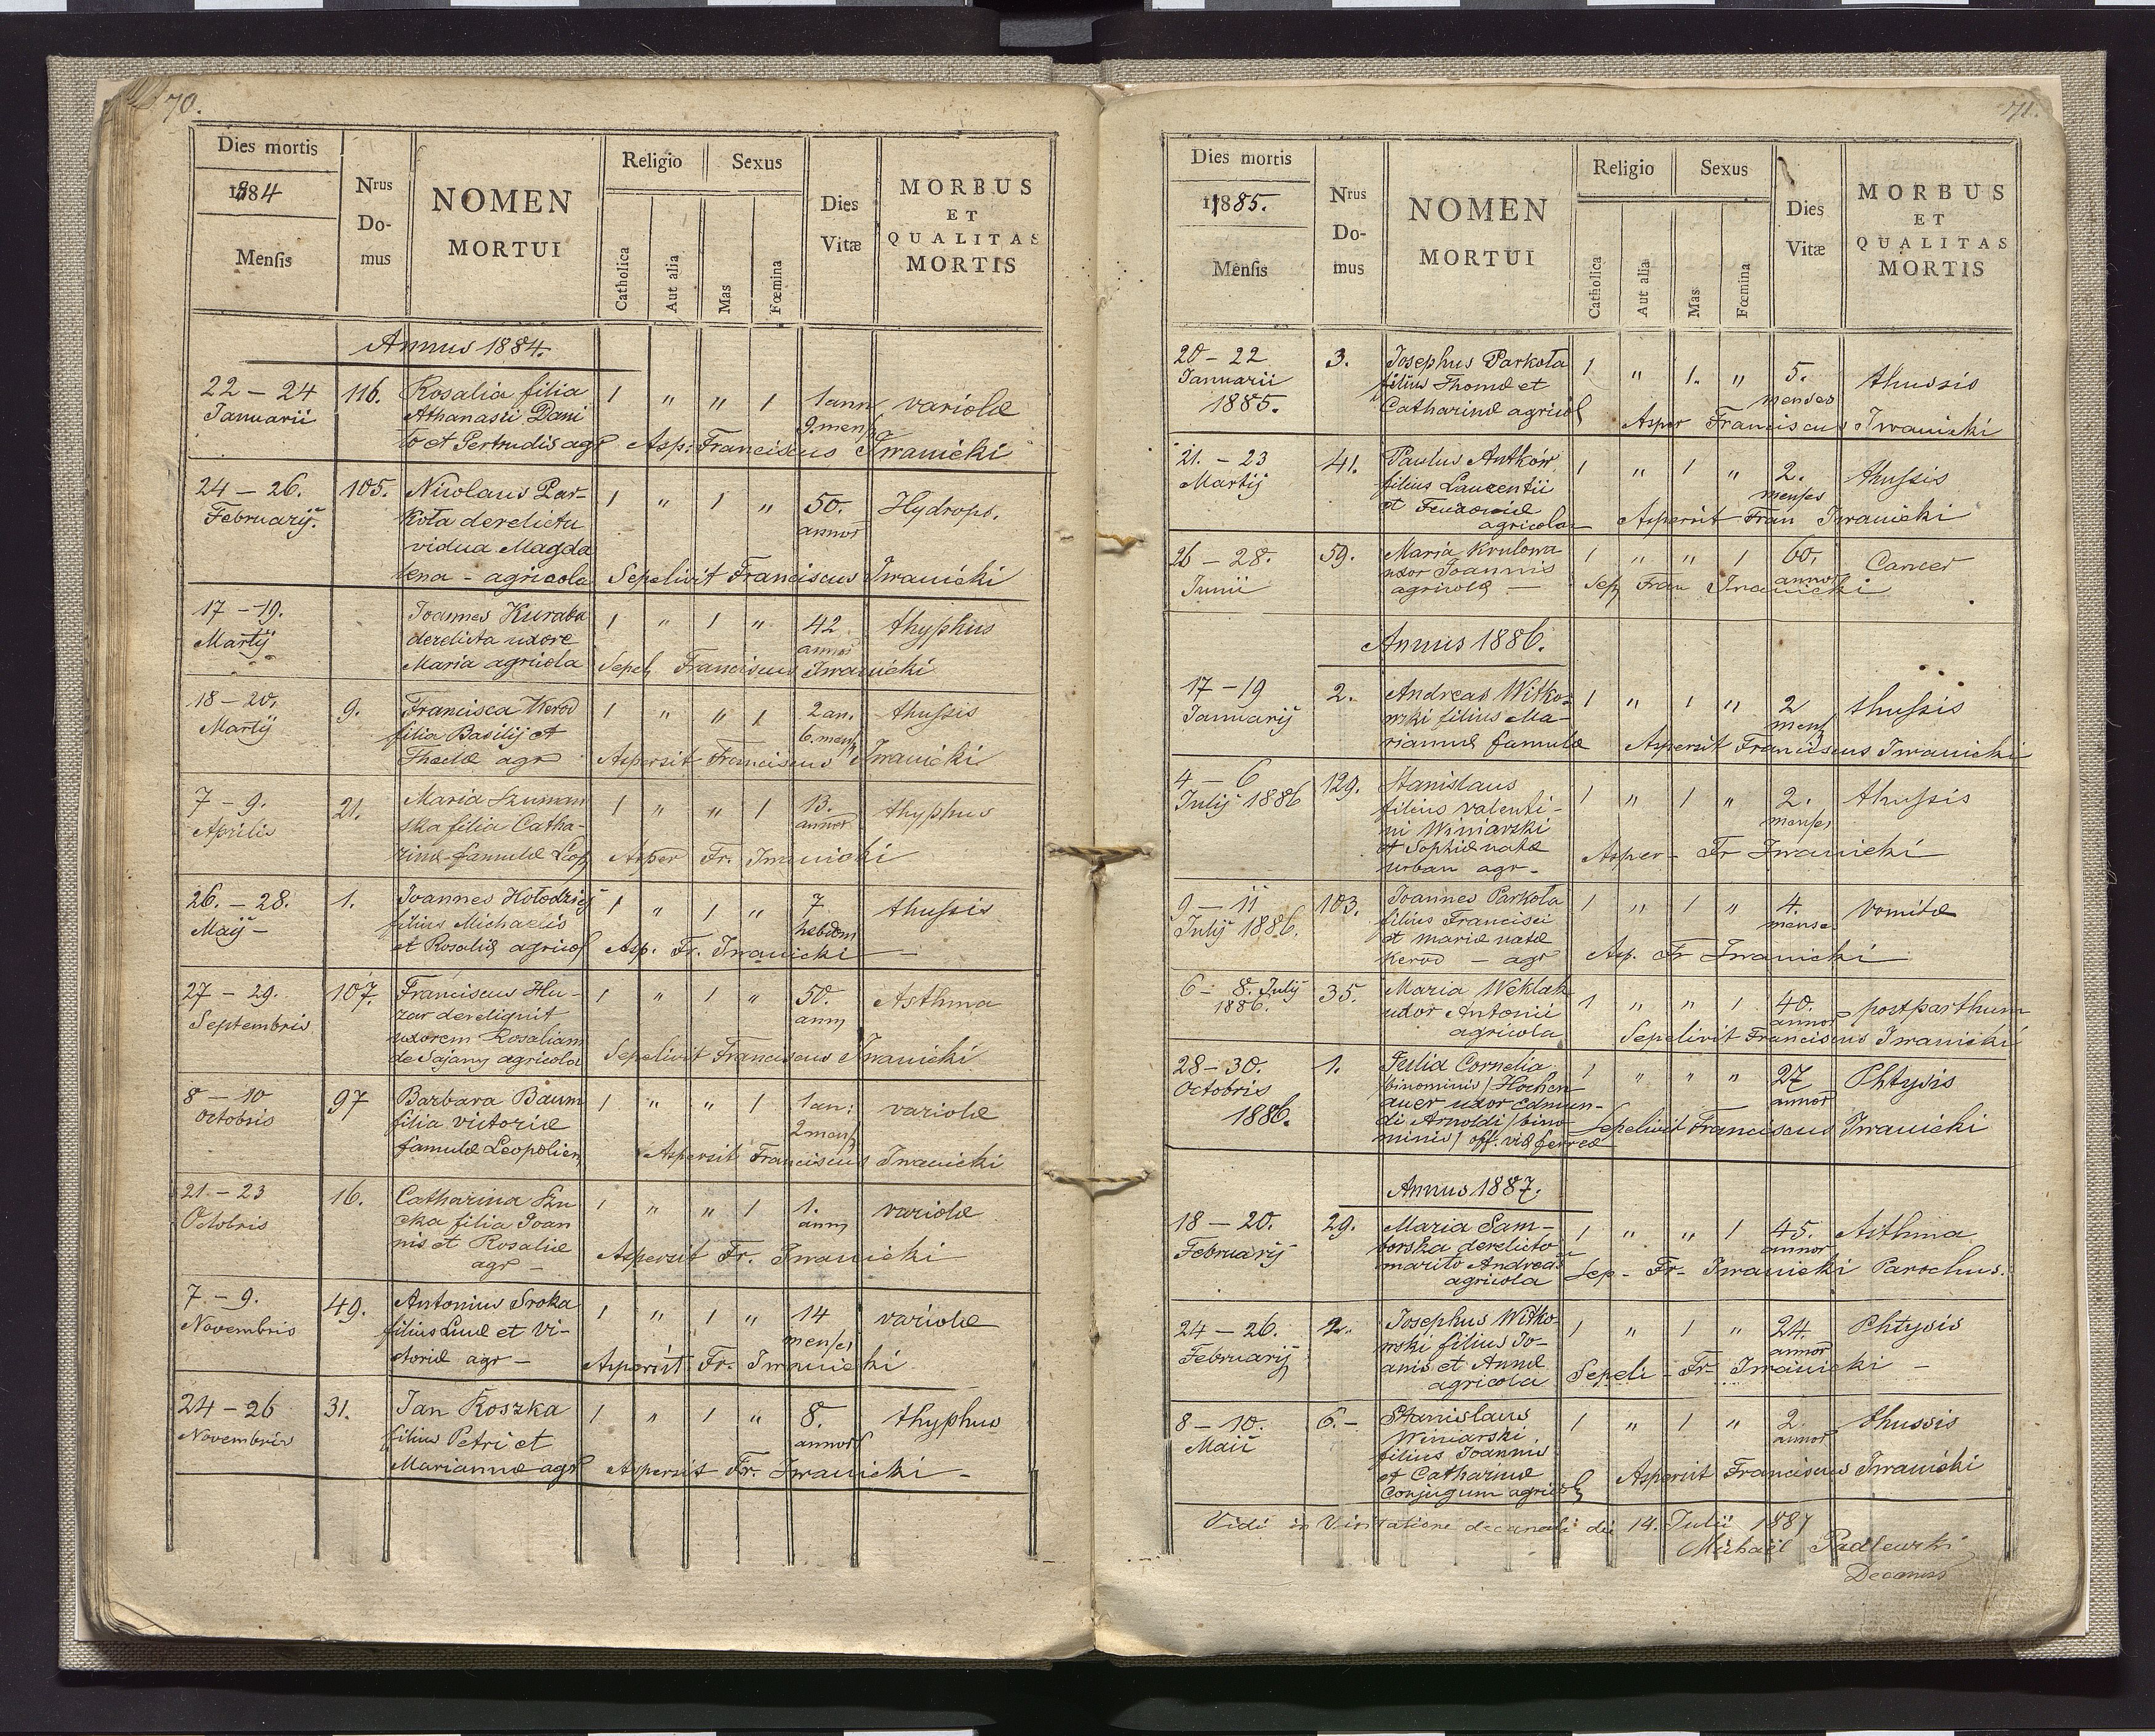 70.
Dies mortis
1884
Mensis
Nrus
Do-
mus
NOMEN
MORTUI
Religio
Sexus
Catholica
Aut alia
Mas
Fœmina
Dies
Vitæ
MORBUS
ET
QUALITAS
MORTIS
Annus 1884.
22 – 24 116. Rosalia filia 1 " " 1 1 ann variolæ
Januarii Athanasii Dani 9. mens
ło et Gertrudis agr Asp: Franciscus Iwanicki
24 – 26. 105. Nicolaus Par- 1 " 1 " 50. Hydrops.
Februarij. kota derelicta annor
vidua Magda
lena – agricola Sepelivit Franciscus Iwanicki
17 – 19. Joannes Kuraba 1 " 1 " 42 thyphus
Martij derelicta uxore annor
Maria agricola Sepel Franciscus Iwanicki
18 – 20. 9. Francisca Kerod 1 " " 1 2 an. thussis
Martij filia Basilij et 6. mens
Theclæ agr Aspersit Franciscus Iwanicki
7 – 9. 21. Maria Szuman 1 " " 1 13. thyphus
Aprilis ska filia Catha- annor
rinæ famulæ Leop Asper Fr. Iwanicki
26. – 28. 1. Joannes Hołodzij 1 " 1 " 7 thussis
Maij – filius Michaelis hebdom
et Rosaliæ agricol Asp. Fr. Iwanicki –
27 – 29. 107. Franciscus Hu- 1 " 1 " 50. Asthma
Septembris zar dereliquit ann
uxorem Rosaliam
de Sajany agricola Sepelivit Franciscus Iwanicki
8 – 10 97 Barbara Baum 1 " " 1 1 an: variolæ
Octobris filia victoriæ 2 mens
famulæ Leopolien Aspersit Franciscus Iwanicki
21 – 23 16. Catharina Szu 1 " " 1 1. variolæ
Octobris cka filia Joan ann
nis et Rosaliæ Aspersit Fr. Iwanicki
agr –
7 – 9. 49. Antonius Sroka 1 " 1 " 14 variolæ
Novembris filius Lucæ et Vi- menses
ctoriæ agr – Aspersit Fr. Iwanicki
24 – 26 31. Jan Koszka 1 " 1 " 8. thyphus
Novembris filius Petri et annor
Mariannæ agr Aspersit Fr. Iwanicki –
71.
Dies mortis
1885.
Mensis
Nrus
Do-
mus
NOMEN
MORTUI
Religio
Sexus
Catholica
Aut alia
Mas
Fœmina
Dies
Vitæ
MORBUS
ET
QUALITAS
MORTIS
20 – 22 3. Josephus Parkota 1 " 1. " 5. thussis
Januarii filius Thomæ et menses
1885. Catharinæ agricol Asper Franciscus Iwanicki
21. – 23 41. Paulus Antków 1 " 1 " 2. thussis
Martij filius Laurentii menses
et
agricola Aspersit Fran Iwanicki
26 – 28. 59. Maria Krulowa 1 " " 1 60. Cancer
Junii uxor Joannis annor
agricolæ – Sep Fran Iwanicki
Annus 1886.
17 – 19 2. Andreas Witko- 1 " 1 " 2 thussis
Januarij wski filius Ma- mens
riannæ famulæ Aspersit Franciscus Iwanicki
4 – 6 129. Stanislaus 1 " 1 " 2. thussis
Julij 1886 filius valenti- menses
ni Winiarski
et Sophiæ natæ Asper – Fr Iwanicki
urban agr –
9 – 11 103. Joannes Parkota 1 " 1 " 4. vomitæ
Julij 1886. filius Francisci mense
et mariæ natæ Asp. Fr Iwanicki
Kerod – agr
6 – 8. Julij 35. Maria Weklak 1 " " 1 40. postparthum
1886. uxor Antonii annor
agricola Sepelivit Franciscus Iwanicki
28 – 30. 1. Julia Cornelia 1 " " " 27 Phtysis
Octobris binominis / Hochen annor
1886. auer uxor Edmun-
di Arnoldi / bino Sepelivit Franciscus Iwanicki
minis / off. viæ ferreæ
Annus 1887.
18 – 20. 29. Maria Sam- 1 " " 1 45. Asthma
Februarij borska derelicto annor
marito Andrea
agricola Sep – Fr – Iwanicki Parochus.
24 – 26. 2. Josephus Witko 1 " 1 " 24 Phtysis
Februarij wski filius Jo- annor
anis et Annæ
agricola Sepeli – Fr – Iwanicki –
8 – 10. 6. – Stanislaus 1 " 1 " 2. thussis
Maii Winiarski annor
filius Joannis
et Catharinæ Aspersit Franciscus Iwanicki
Conjugum agricol
Vidi in Visitatione decanali die 14. Julii 1887
Michaël Padlewski
Decanus